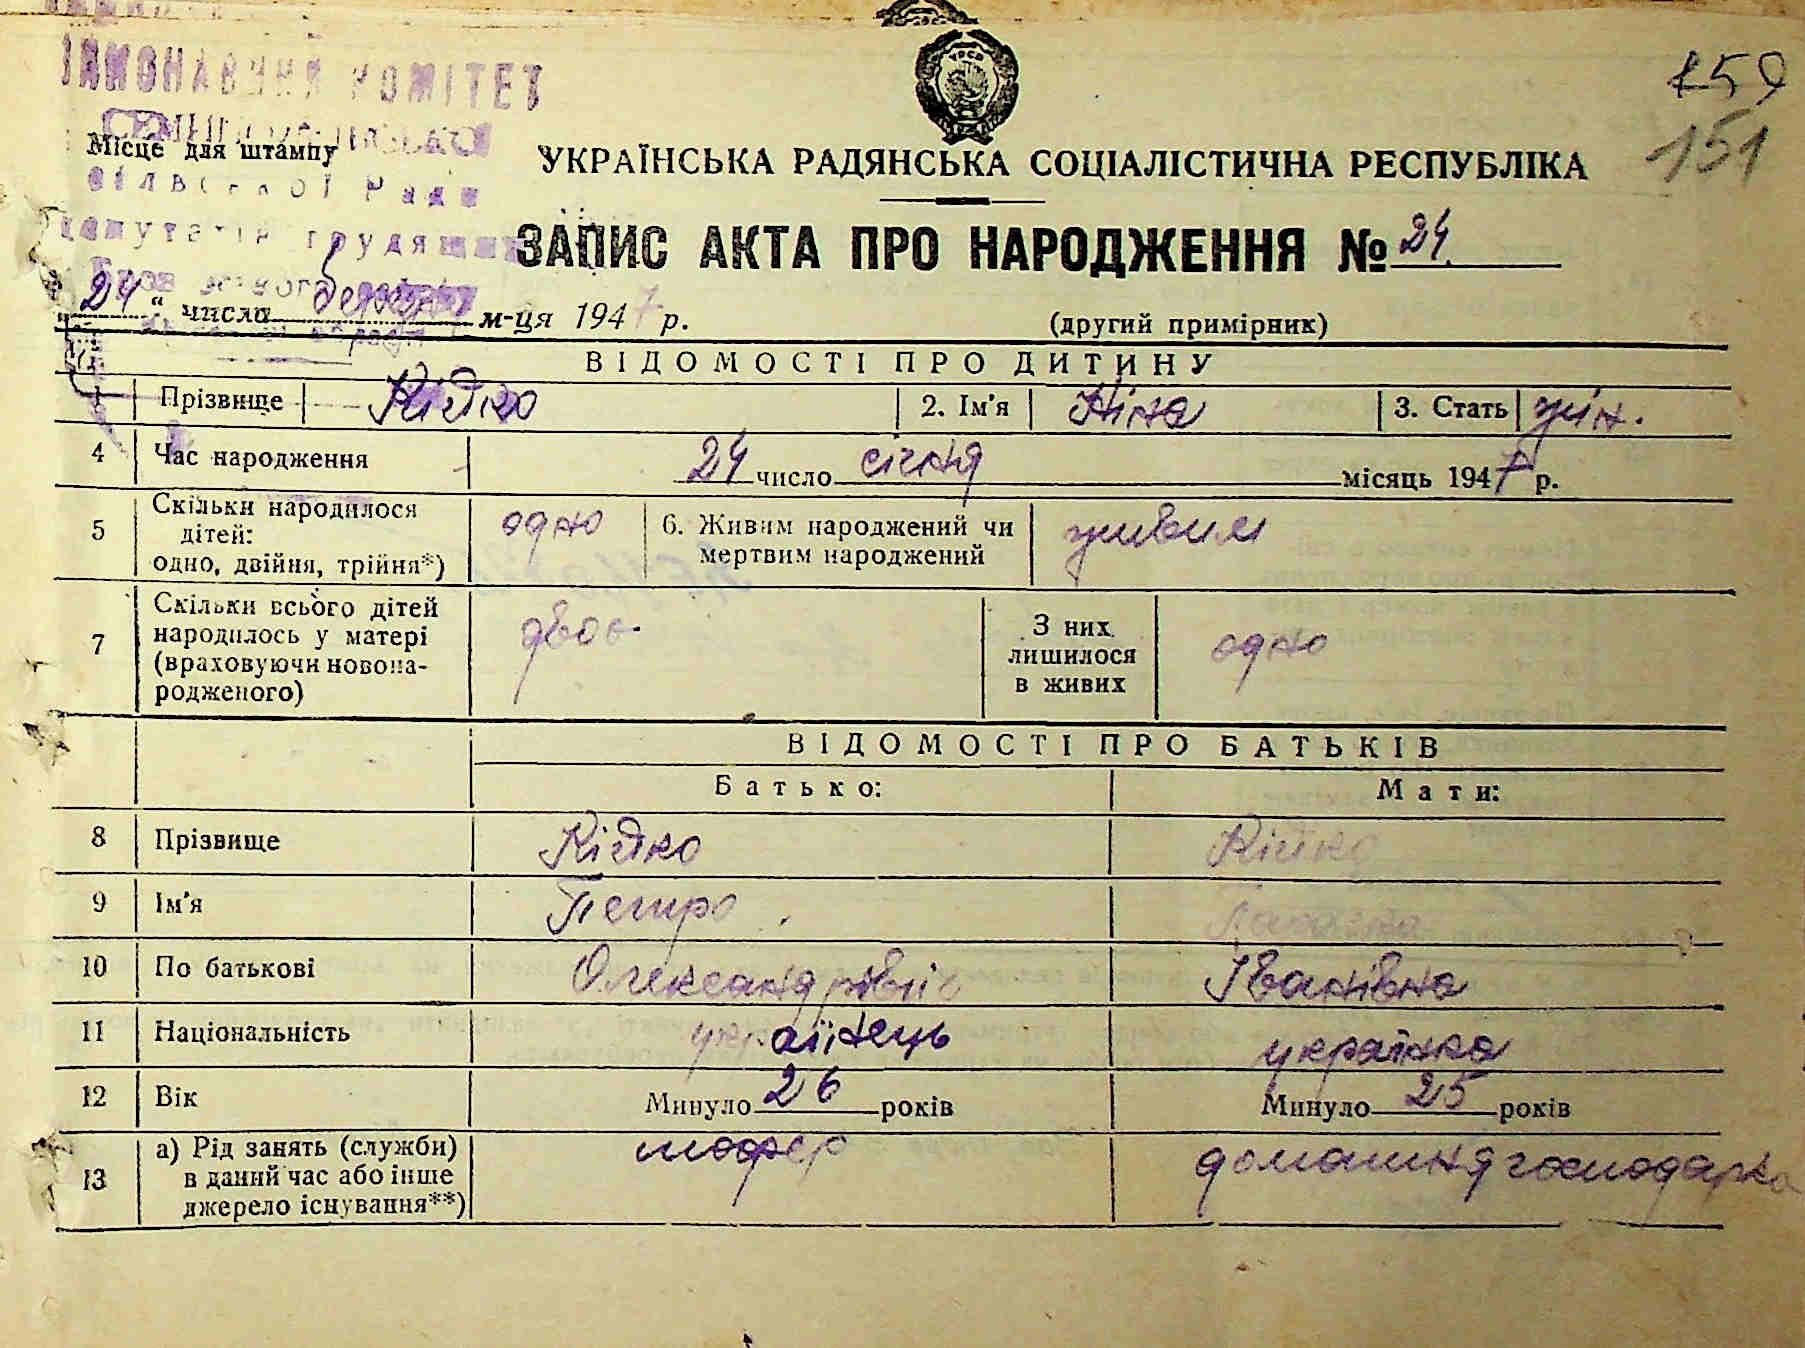 159
151
ВИКОНАВЧИЙ КОМІТЕТ
Місце для штампу
сільської Ради
депутатів трудящих
УКРАЇНСЬКА РАДЯНСЬКА СОЦІАЛІСТИЧНА РЕСПУБЛІКА
ЗАПИС АКТА ПРО НАРОДЖЕННЯ № 24
24 “ числа м-ця 1947 р.
(другий примірник)
ВІДОМОСТІ ПРО ДИТИНУ
1 Прізвище Кідко 2. Ім'я Ніна 3. Стать жін.
4 Час народження 24 число січня місяць 1947 р.
5 Скільки народилося дітей: одно, двійня, трійня*) одно 6. Живим народжений чи мертвим народжений живим
7 Скільки всього дітей народилось у матері (враховуючи новонародженого) двоє З них лишилося в живих одно
ВІДОМОСТІ ПРО БАТЬКІВ
Батько: Мати:
8 Прізвище Кідко Кідко
9 Ім'я Петро
10 По батькові Олександрівіч Іванівна
11 Національність українець українка
12 Вік Минуло 26 років Минуло 25 років
13 а) Рід занять (служби) в даний час або інше джерело існування**) шофер домашня господарка